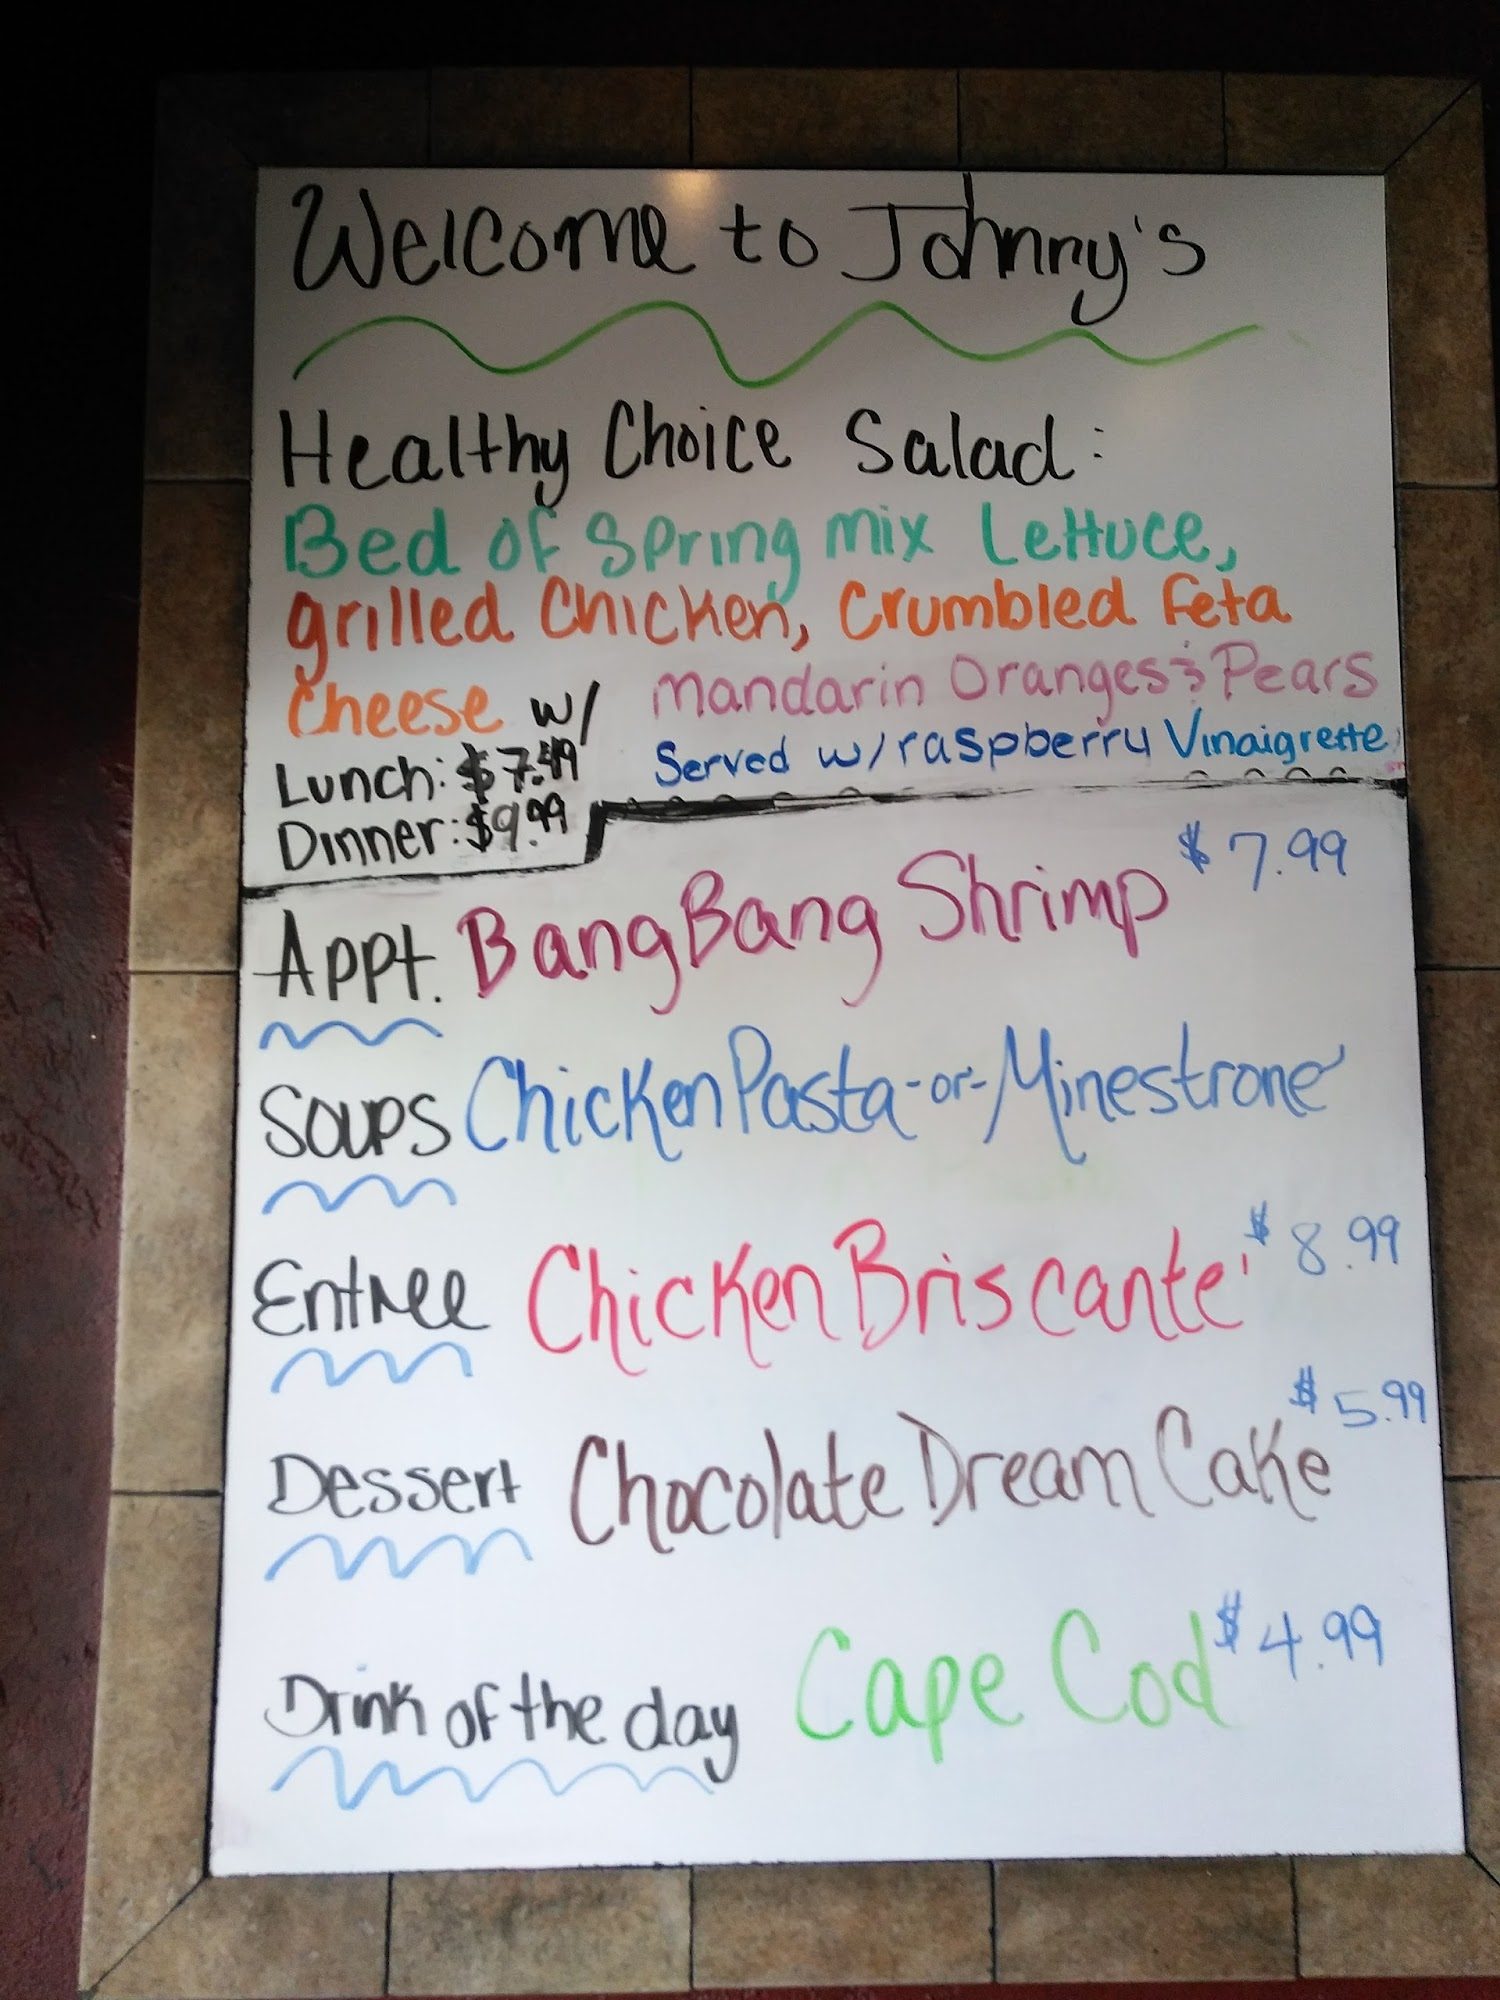 Welcome to Johnny's
Healthy Choice Salad:
Bed of Spring mix Lettuce,
grilled Chicken, Crumbled Feta
Cheese w/ Mandarin Oranges & Pears
Served w/ raspberry Vinaigrette
Lunch: $7.49
Dinner: $9.99
Appt. Bang Bang Shrimp $7.99
Soups Chicken Pasta -or- Minestrone
Entree Chicken Briscante' $8.99
Dessert Chocolate Dream Cake $5.99
Drink of the day Cape Cod $4.99